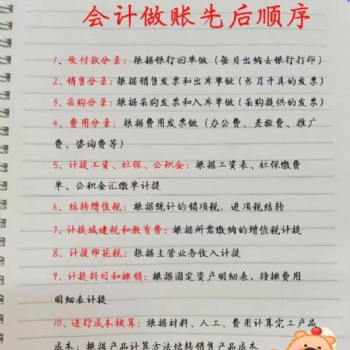 会计做账先后顺序
1、收付款分录：根据银行回单做（每月出纳去银行打印）
2、销售分录：根据销售发票和出库单做（当月开具的发票）
3、采购分录：根据采购发票和入库单做（采购提供的发票）
4、费用分录：根据费用发票做（办公费、差旅费、推广
费、咨询费等）
5、计提工资、社保、公积金：根据工资表、社保缴费
单、公积金汇缴单计提
6、结转增值税：根据统计的销项税，进项税结转
7、计提城建税和教育费：根据所需缴纳的增值税计提
8、计提印花税：根据主营业务收入计提
9、计提折旧和摊销：根据固定资产明细表，待摊费用
明细表计提
10、进行成本核算：根据材料、人工、费用计算完工产品
成本；根据产品计算方法结转销售产品成本